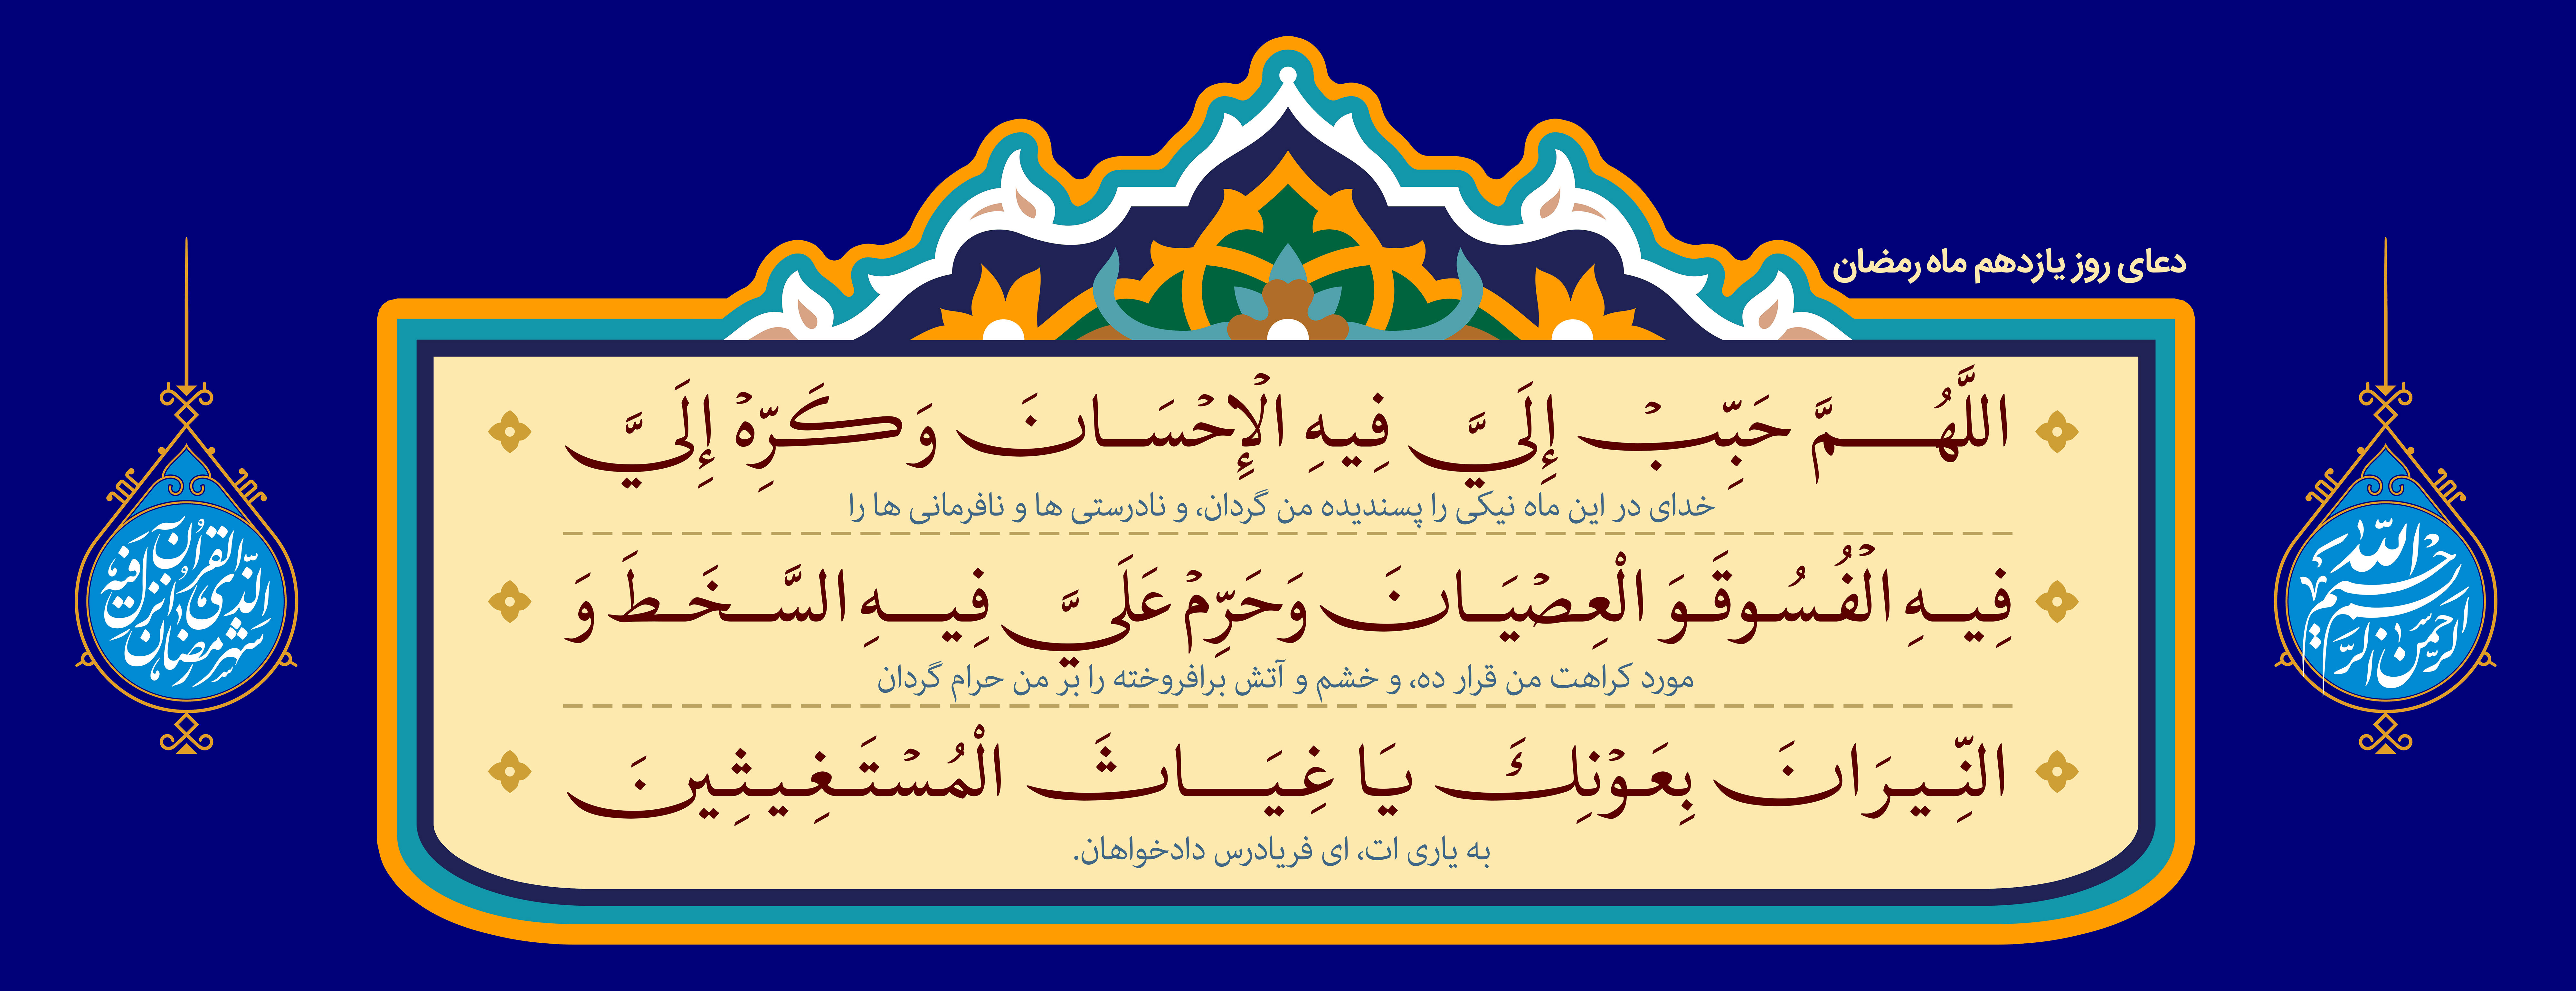 دعای روز یازدهم ماه رمضان
اللَّهُمَّ حَبِّبْ إِلَيَّ فِيهِ الْإِحْسَانَ وَكَرِّهْ إِلَيَّ
خدای در این ماه نیکی را پسندیده من گردان، و نادرستی ها و نافرمانی ها را
فِيهِ الْفُسُوقَ وَ الْعِصْيَانَ وَحَرِّمْ عَلَيَّ فِيهِ السَّخَطَ وَ
مورد کراهت من قرار ده، و خشم و آتش برافروخته را بر من حرام گردان
النِّيرَانَ بِعَوْنِكَ يَا غِيَاثَ الْمُسْتَغِيثِينَ
به یاری ات، ای فریادرس دادخواهان.
بسم الله الرحمن الرحیم
شهر رمضان الذی انزل فیه القرآن